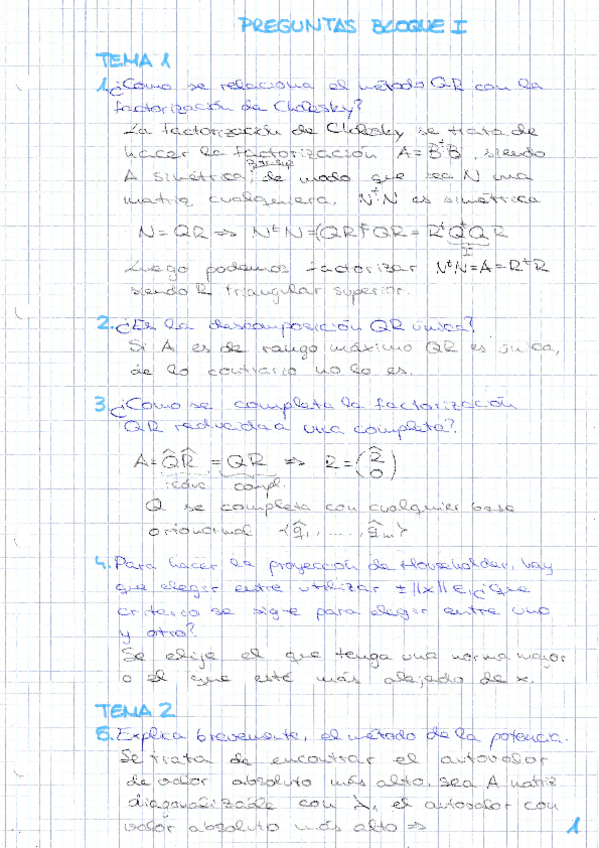 PREGUNTAS BLOQUE I
TEMA 1
1. ¿Cómo se relaciona el método QR con la
factorización de Cholesky?
La factorización de Cholesky se trata de
hacer la factorización A=BᵗB, siendo
B t. sup
A simétrica, de modo que sea N una
matriz cualquiera, NᵗN es simétrica
N=QR ⇒ NᵗN=(QR)ᵗQR=RᵗQᵗQR
I
Luego podemos factorizar NᵗN=A=RᵗR
siendo R triangular superior.
2. ¿Es la descomposición QR única?
Si A es de rango máximo QR es única,
de lo contrario no lo es.
3. ¿Cómo se completa la factorización
QR reducida a una completa?
A=Q̂R̂ = QR ⇒ R=(R̂
0)
reduc. compl.
Q se completa con cualquier base
ortonormal <q̂₁, ....., q̂ₘ>
4. Para hacer la proyección de Householder, hay
que elegir entre utilizar ±||x||e₁, ¿que
criterio se sigue para elegir entre uno
y otro?
Se elije el que tenga una norma mayor
o el que esté más alejado de x.
TEMA 2
5. Explica brevemente, el método de la potencia.
Se trata de encontrar el autovalor
de valor absoluto más alto. sea A matriz
diagonalizable con λ₁ el autovalor con
valor absoluto más alto ⇒
1